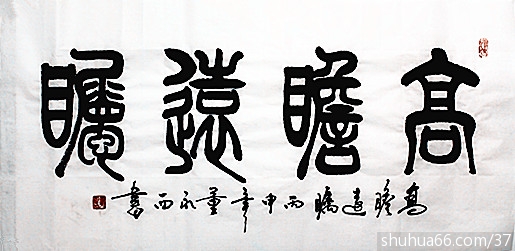 高瞻遠矚
高瞻遠矚丙申年董永西書
shuhua66.com/37